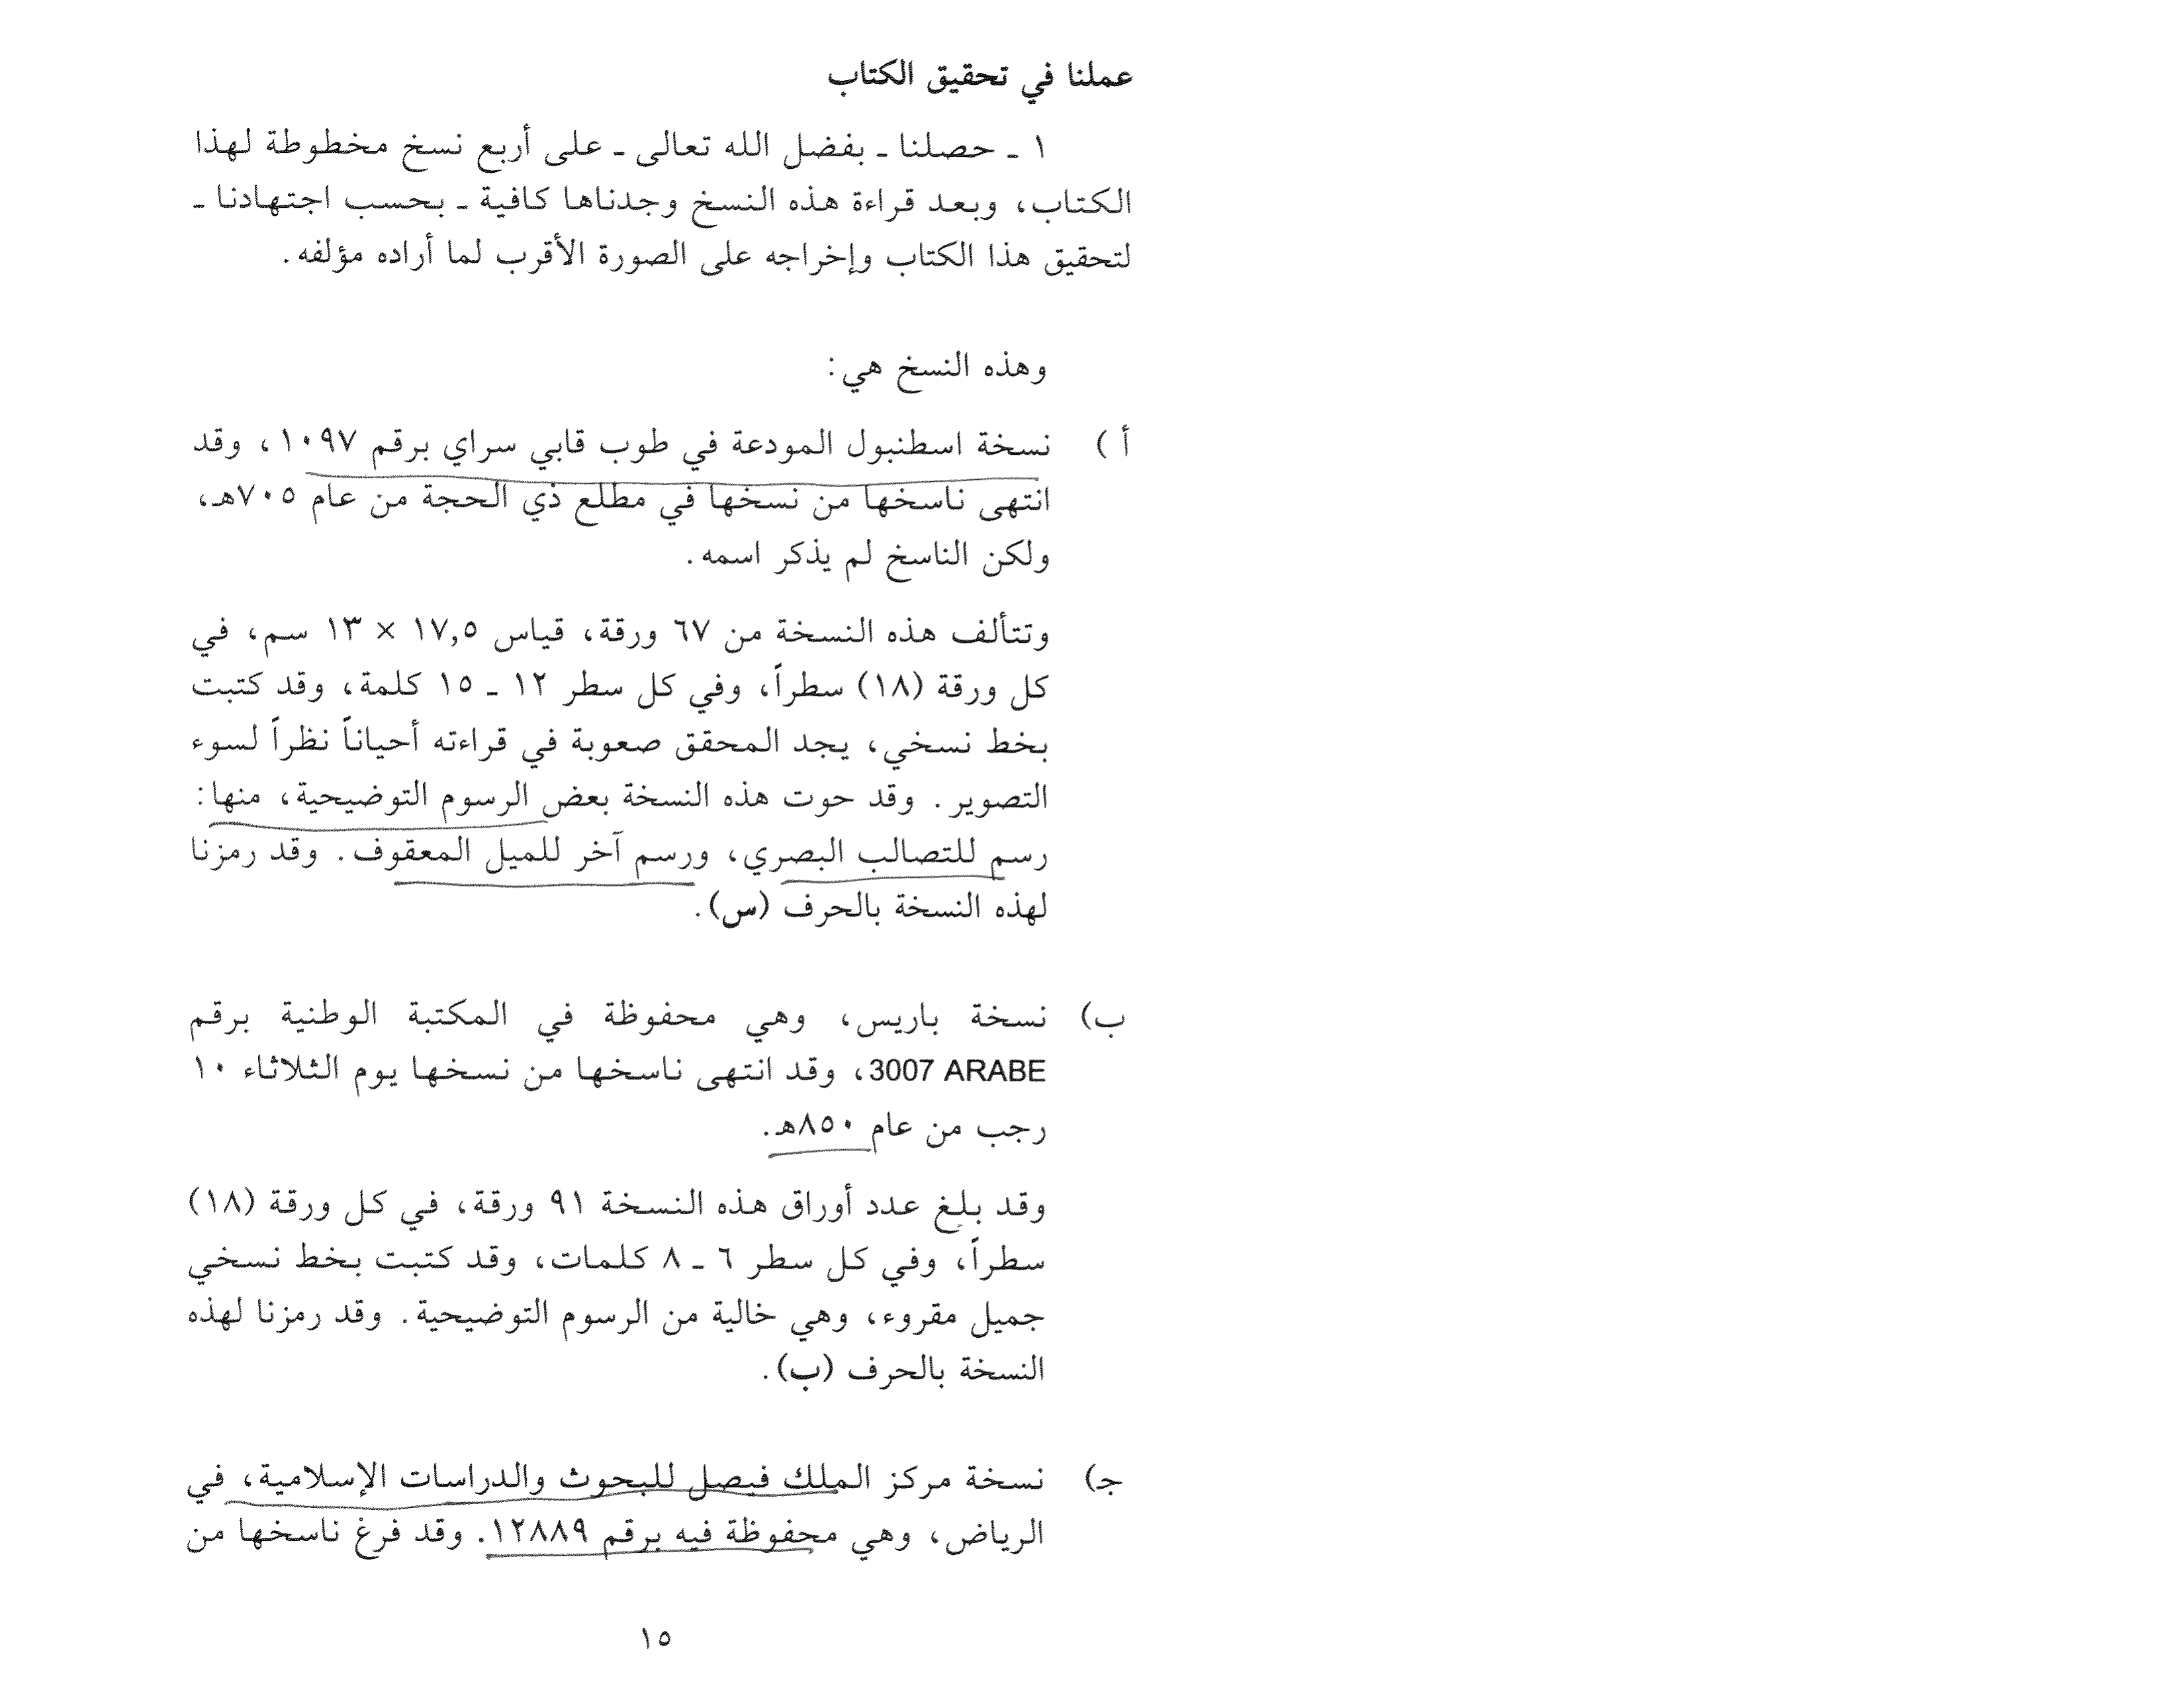 عملنا في تحقيق الكتاب
١ ـ حصلنا ـ بفضل الله تعالى ـ على أربع نسخ مخطوطة لهذا
الكتاب، وبعد قراءة هذه النسخ وجدناها كافية ـ بحسب اجتهادنا ـ
لتحقيق هذا الكتاب وإخراجه على الصورة الأقرب لما أراده مؤلفه.
وهذه النسخ هي:
أ ) نسخة اسطنبول المودعة في طوب قابي سراي برقم ١٠٩٧، وقد
انتهى ناسخها من نسخها في مطلع ذي الحجة من عام ٧٠٥هـ،
ولكن الناسخ لم يذكر اسمه.
وتتألف هذه النسخة من ٦٧ ورقة، قياس ١٧,٥ × ١٣ سم، في
كل ورقة (١٨) سطراً، وفي كل سطر ١٢ ـ ١٥ كلمة، وقد كتبت
بخط نسخي، يجد المحقق صعوبة في قراءته أحياناً نظراً لسوء
التصوير. وقد حوت هذه النسخة بعض الرسوم التوضيحية، منها:
رسم للتصالب البصري، ورسم آخر للميل المعقوف. وقد رمزنا
لهذه النسخة بالحرف (س).
ب) نسخة باريس، وهي محفوظة في المكتبة الوطنية برقم
3007 ARABE، وقد انتهى ناسخها من نسخها يوم الثلاثاء ١٠
رجب من عام ٨٥٠هـ.
وقد بلغ عدد أوراق هذه النسخة ٩١ ورقة، في كل ورقة (١٨)
سطراً، وفي كل سطر ٦ ـ ٨ كلمات، وقد كتبت بخط نسخي
جميل مقروء، وهي خالية من الرسوم التوضيحية. وقد رمزنا لهذه
النسخة بالحرف (ب).
جـ) نسخة مركز الملك فيصل للبحوث والدراسات الإسلامية، في
الرياض، وهي محفوظة فيه برقم ١٢٨٨٩. وقد فرغ ناسخها من
١٥